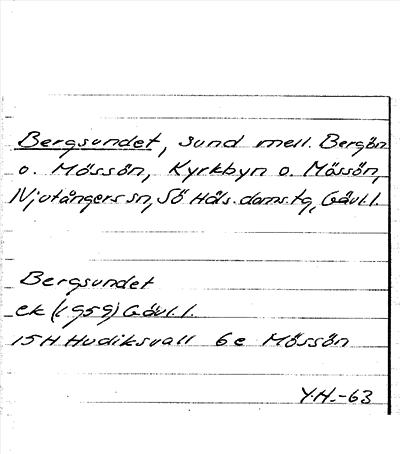 Bergsundet, sund mell. Bergön
o. Mössön, Kyrkbyn o. Mössön,
Njutångers sn, Sö Häls. doms.tg, Gävl.l.
Bergsundet
ek (1959) Gävl.l.
15H Hudiksvall 6e Mössön
Y.H.-63